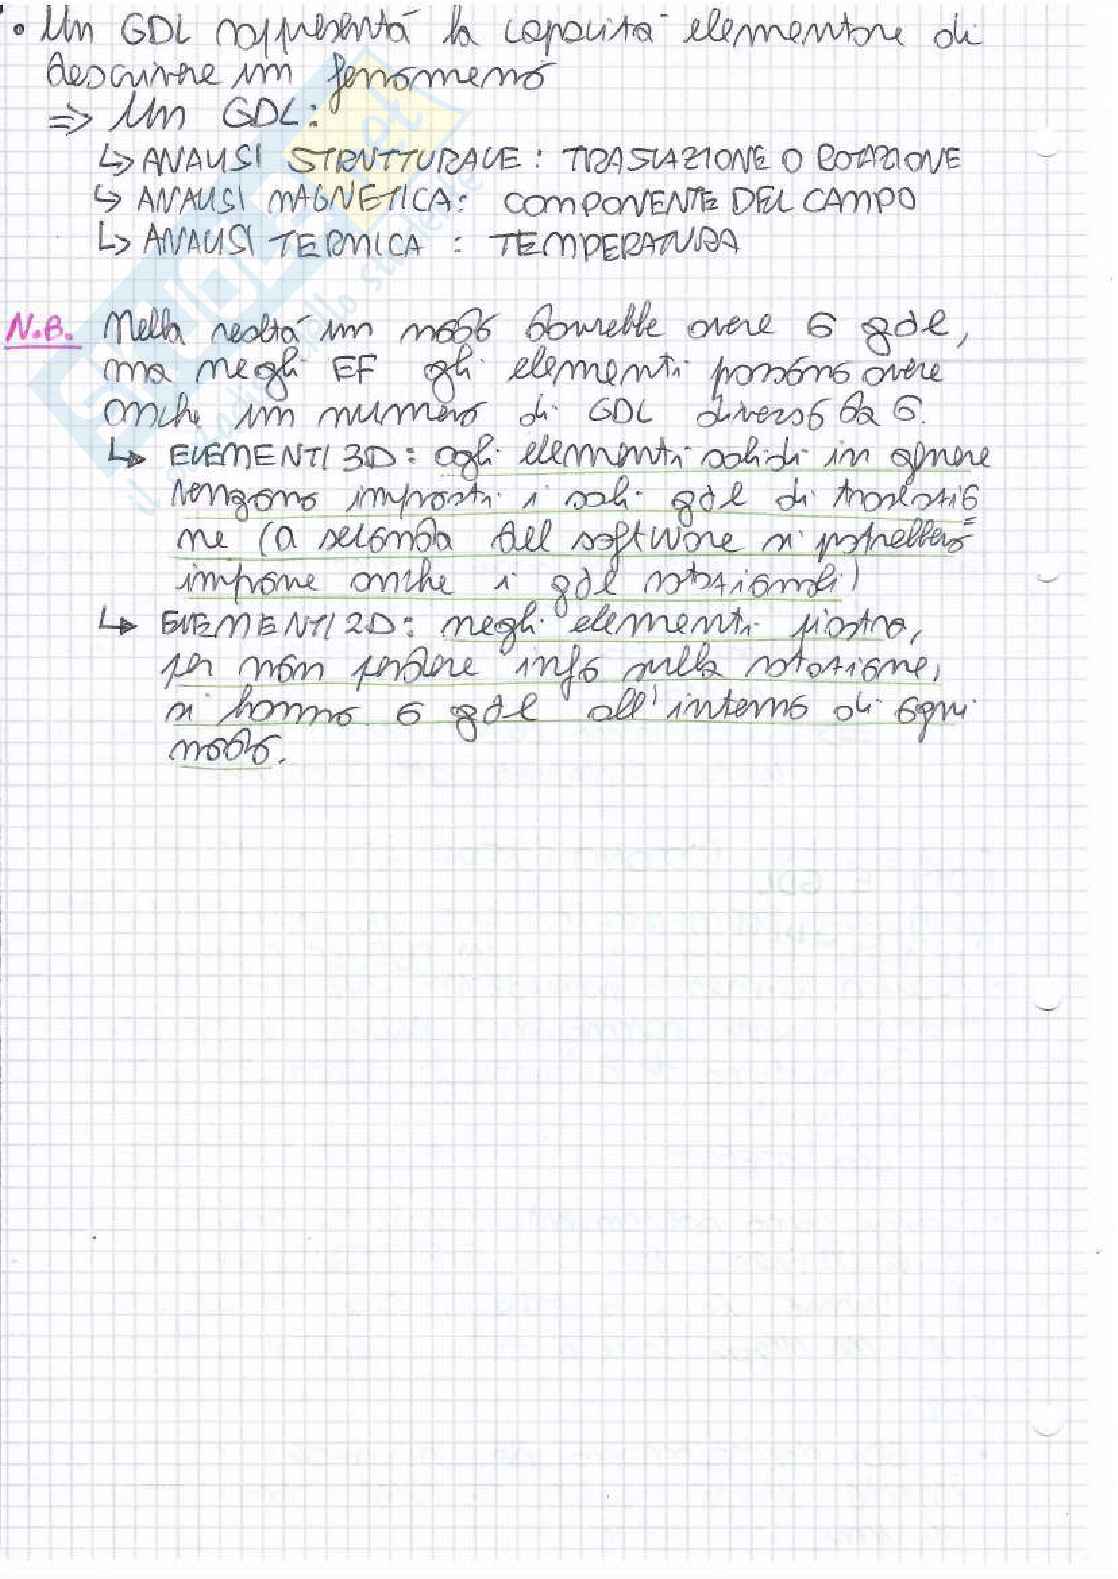 • Un GDL rappresenta la capacità elementare di
descrivere un fenomeno
⇒ Un GDL:
↳ ANALISI STRUTTURALE: TRASLAZIONE O ROTAZIONE
↳ ANALISI MAGNETICA: COMPONENTE DEL CAMPO
↳ ANALISI TERMICA: TEMPERATURA
N.B. Nella realtà un nodo dovrebbe avere 6 gdl,
ma negli EF gli elementi possono avere
anche un numero di GDL diverso da 6.
↳ ELEMENTI 3D: agli elementi solidi in genere
vengono imposti i soli gdl di traslazio
ne (a seconda del software si potrebbero
imporre anche i gdl rotazionali)
↳ ELEMENTI 2D: negli elementi piastra,
per non perdere info sulla rotazione,
si hanno 6 gdl all'interno di ogni
nodo.
SKUOLA.net
il
dello studente